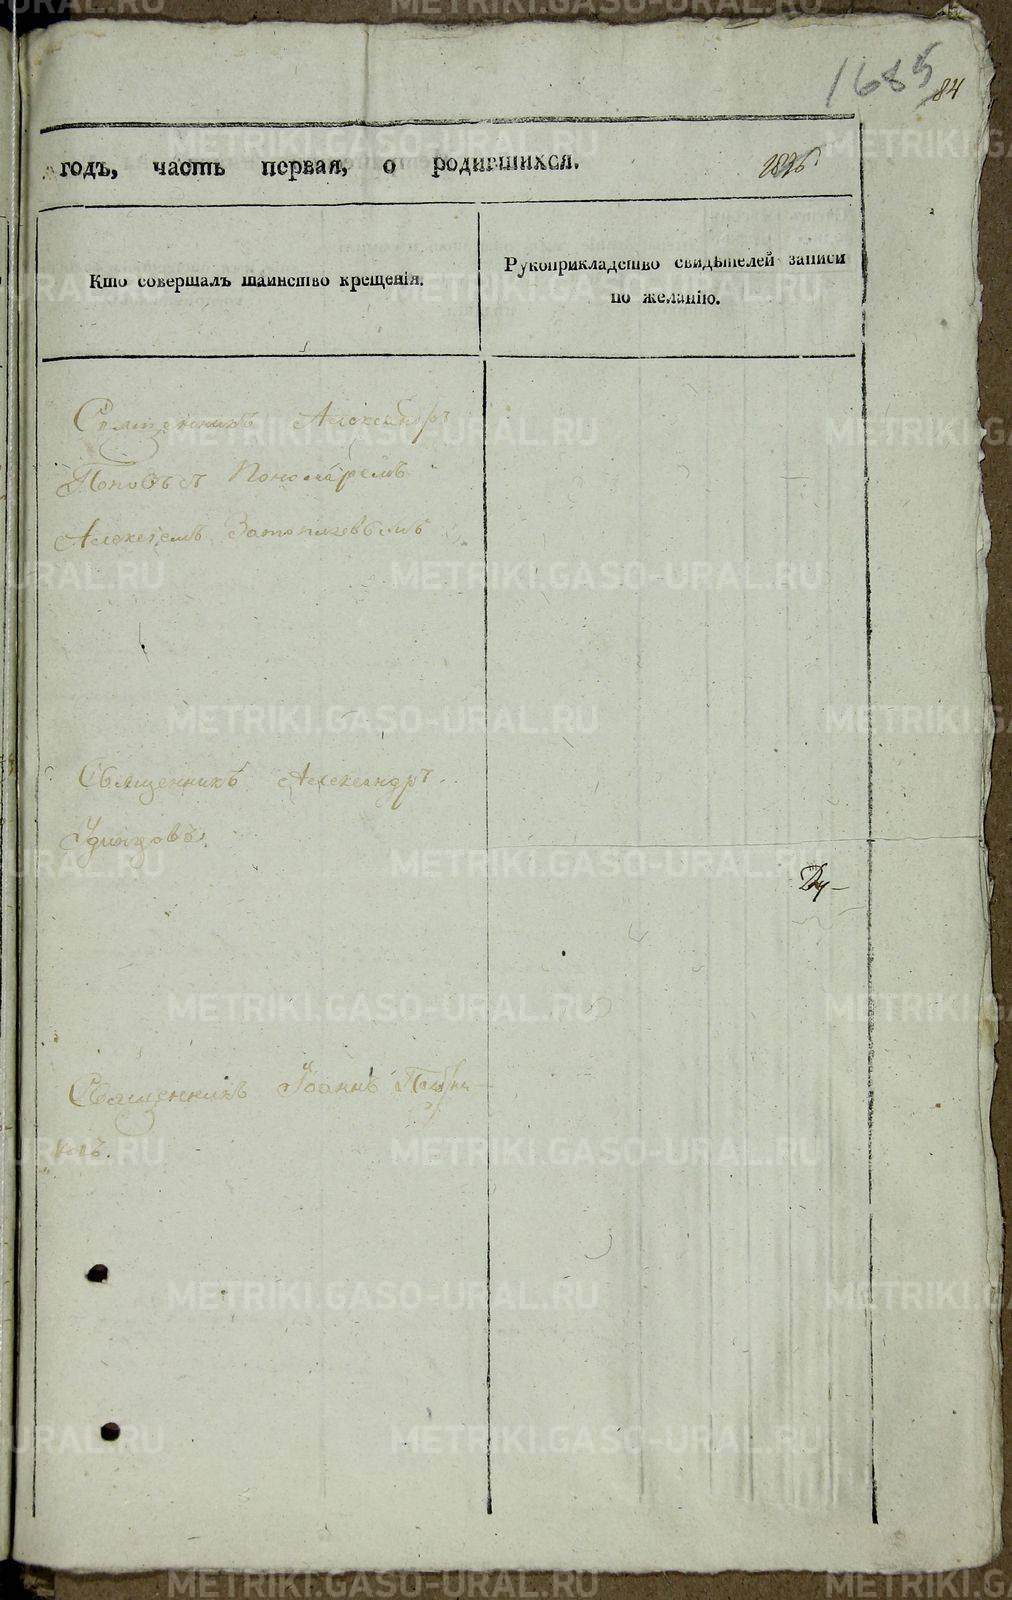 1685
84
годъ, часть первая, о родившихся.
Кто совершалъ таинство крещенія.
Рукоприкладство свидѣтелей записи
по желанію.
Священникъ Александръ
Поповъ съ Пономаремъ
Алексіемъ
Священникъ Александръ
Священникъ Іоаннъ
METRIKI.GASO-URAL.RU